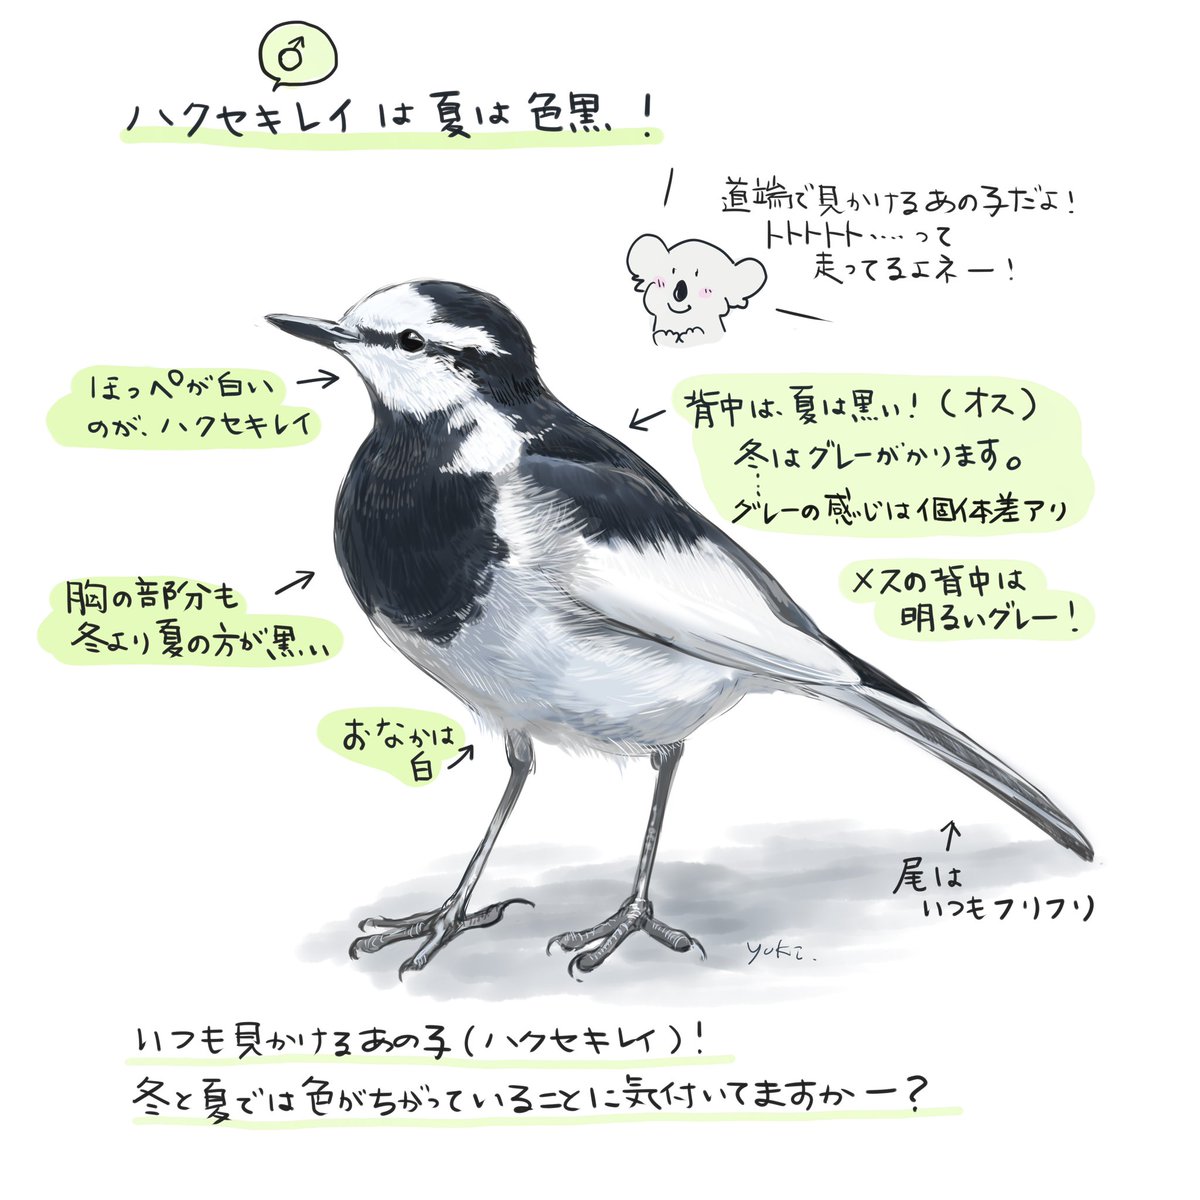 ♂
ハクセキレイは夏は色黒！
道端で見かけるあの子だよ！
トトトトト‥‥って
走ってるよネー！
ほっペが白い
のが、ハクセキレイ
背中は、夏は黒い！（オス）
冬はグレーがかります。
グレーの感じは個体差アリ
胸の部分も
冬より夏の方が黒い
メスの背中は
明るいグレー！
おなかは
白
尾は
いつもフリフリ
yuki.
いつも見かけるあの子（ハクセキレイ）！
冬と夏では色がちがっていることに気付いてますかー？